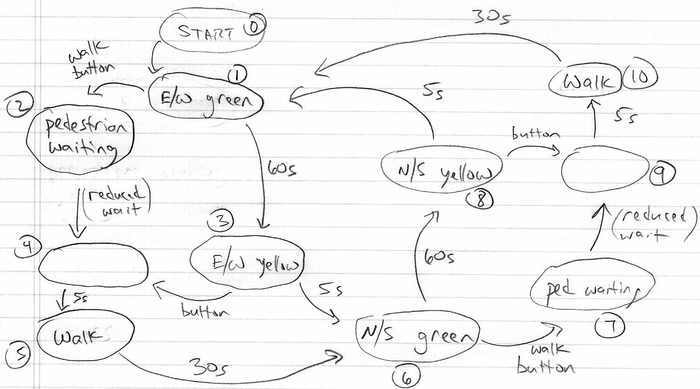 START 0
30s
walk
button
1
E/W green
2
pedestrian
waiting
5s
Walk 10
5s
button
60s
N/S yellow
8
9
(reduced
wait)
3
(reduced
wait)
4
E/W yellow
60s
ped waiting
5s
button
5s
7
Walk
5
N/S green
6
30s
walk
button